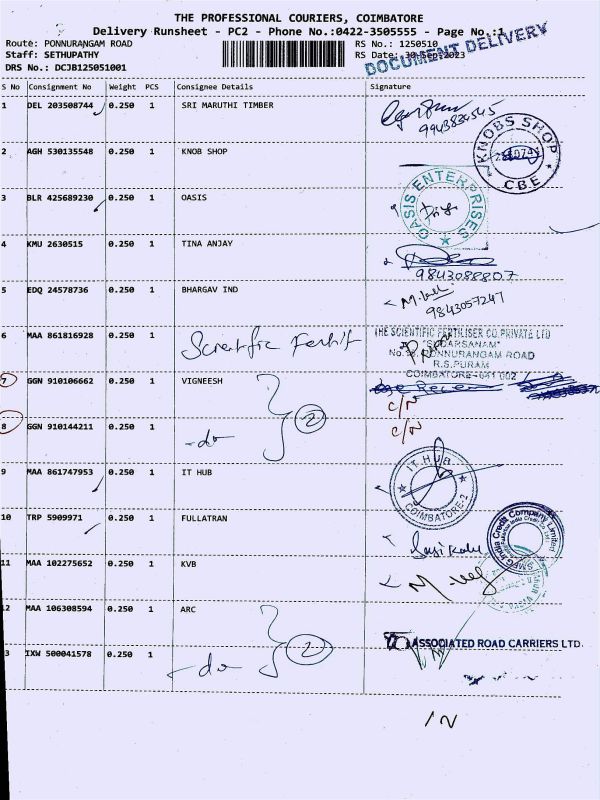 THE PROFESSIONAL COURIERS, COIMBATORE
Delivery Runsheet - PC2 - Phone No.:0422-3505555 - Page No.:1
Route: PONNURANGAM ROAD RS No.: 1250510
Staff: SETHUPATHY RS Date: 30-Sep-2023
DRS No.: DCJB125051001
DOCUMENT DELIVERY
S No Consignment No Weight PCS Consignee Details Signature
1 DEL 203508744 0.250 1 SRI MARUTHI TIMBER
9943834545
2 AGH 530135548 0.250 1 KNOB SHOP
KNOBS SHOP
CBE
3 BLR 425689230 0.250 1 OASIS
OASIS ENTERPRISES
4 KMU 2630515 0.250 1 TINA ANJAY
9843088807
5 EDQ 24578736 0.250 1 BHARGAV IND
9843057247
6 MAA 861816928 0.250 1 Scientific Fertil
THE SCIENTIFIC FERTILISER CO. PRIVATE LTD
"SUDARSANAM"
PONNURANGAM ROAD
R.S.PURAM
COIMBATORE - 641 002
7 GGN 910106662 0.250 1 VIGNEESH
C/N
8 GGN 910144211 0.250 1 -do- 2
C/N
9 MAA 861747953 0.250 1 IT HUB
IT HUB
COIMBATORE-2
10 TRP 5909971 0.250 1 FULLATRAN
SMFG India Credit Company Limited
11 MAA 102275652 0.250 1 KVB
12 MAA 106308594 0.250 1 ARC
ASSOCIATED ROAD CARRIERS LTD.
3 IXW 500041578 0.250 1 -do- 2